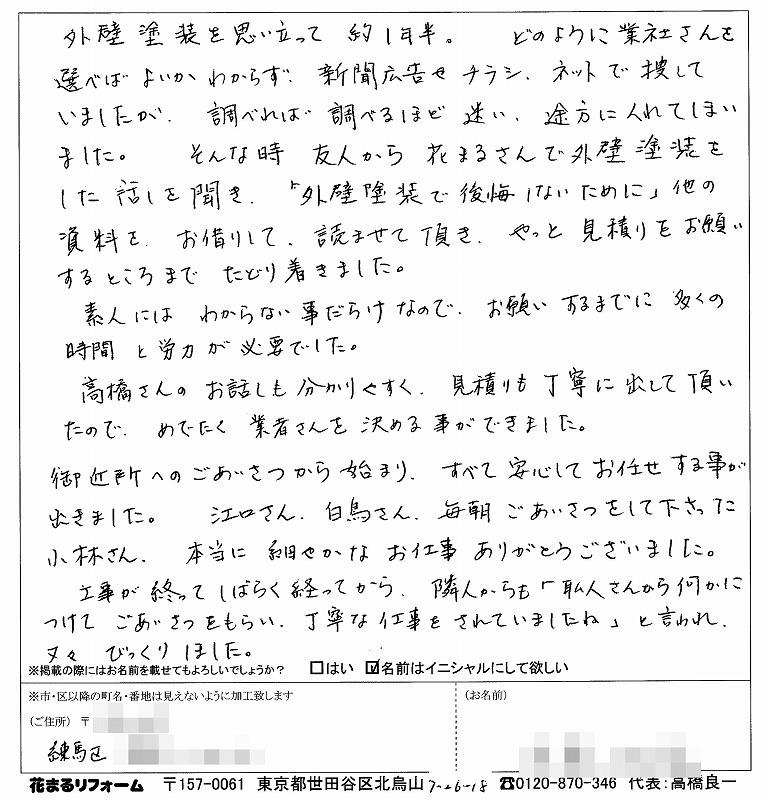 外壁塗装を思い立って 約1年半。 どのように業社さんを
選べばよいかわからず、新聞広告やチラシ、ネットで捜して
いましたが、調べれば調べるほど迷い、途方に入れてしまい
ました。 そんな時 友人から花まるさんで外壁塗装を
した話しを聞き、「外壁塗装で後悔しないために」他の
資料を、お借りして、読ませて頂き、やっと見積りをお願い
するところまで たどり着きました。
素人には わからない事だらけなので、お願いするまでに多くの
時間と労力が必要でした。
高橋さんのお話しも分かりやすく、見積りも丁寧に出して頂い
たので、めでたく業者さんを決める事ができました。
御近所へのごあいさつから始まり、すべて安心してお任せする事が
出きました。 江口さん、白鳥さん、毎朝ごあいさつをして下さった
小林さん、本当に細やかなお仕事ありがとうございました。
工事が終ってしばらく経ってから、隣人からも「職人さんから何かに
つけてごあいさつをもらい、丁寧な仕事をされていましたね」と言われ、
又々 びっくりしました。
※掲載の際にはお名前を載せてもよろしいでしょうか? □はい ☑名前はイニシャルにして欲しい
※市・区以降の町名・番地は見えないように加工致します
(お名前)
(ご住所) 〒
練馬区
花まるリフォーム 〒157-0061 東京都世田谷区北烏山 7-26-18 ☎0120-870-346 代表:高橋良一